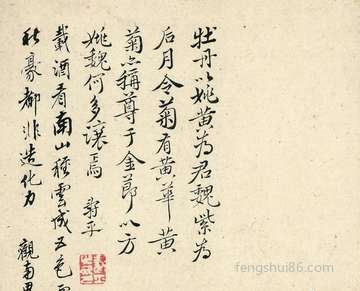 牡丹以姚黄为君魏紫为
后月令菊有黄华黄
菊亦称尊于金节以方
姚魏何多让焉 寿平
载酒看南山种云成五色
秋豪都非造化力
观南田
fengshui86.com